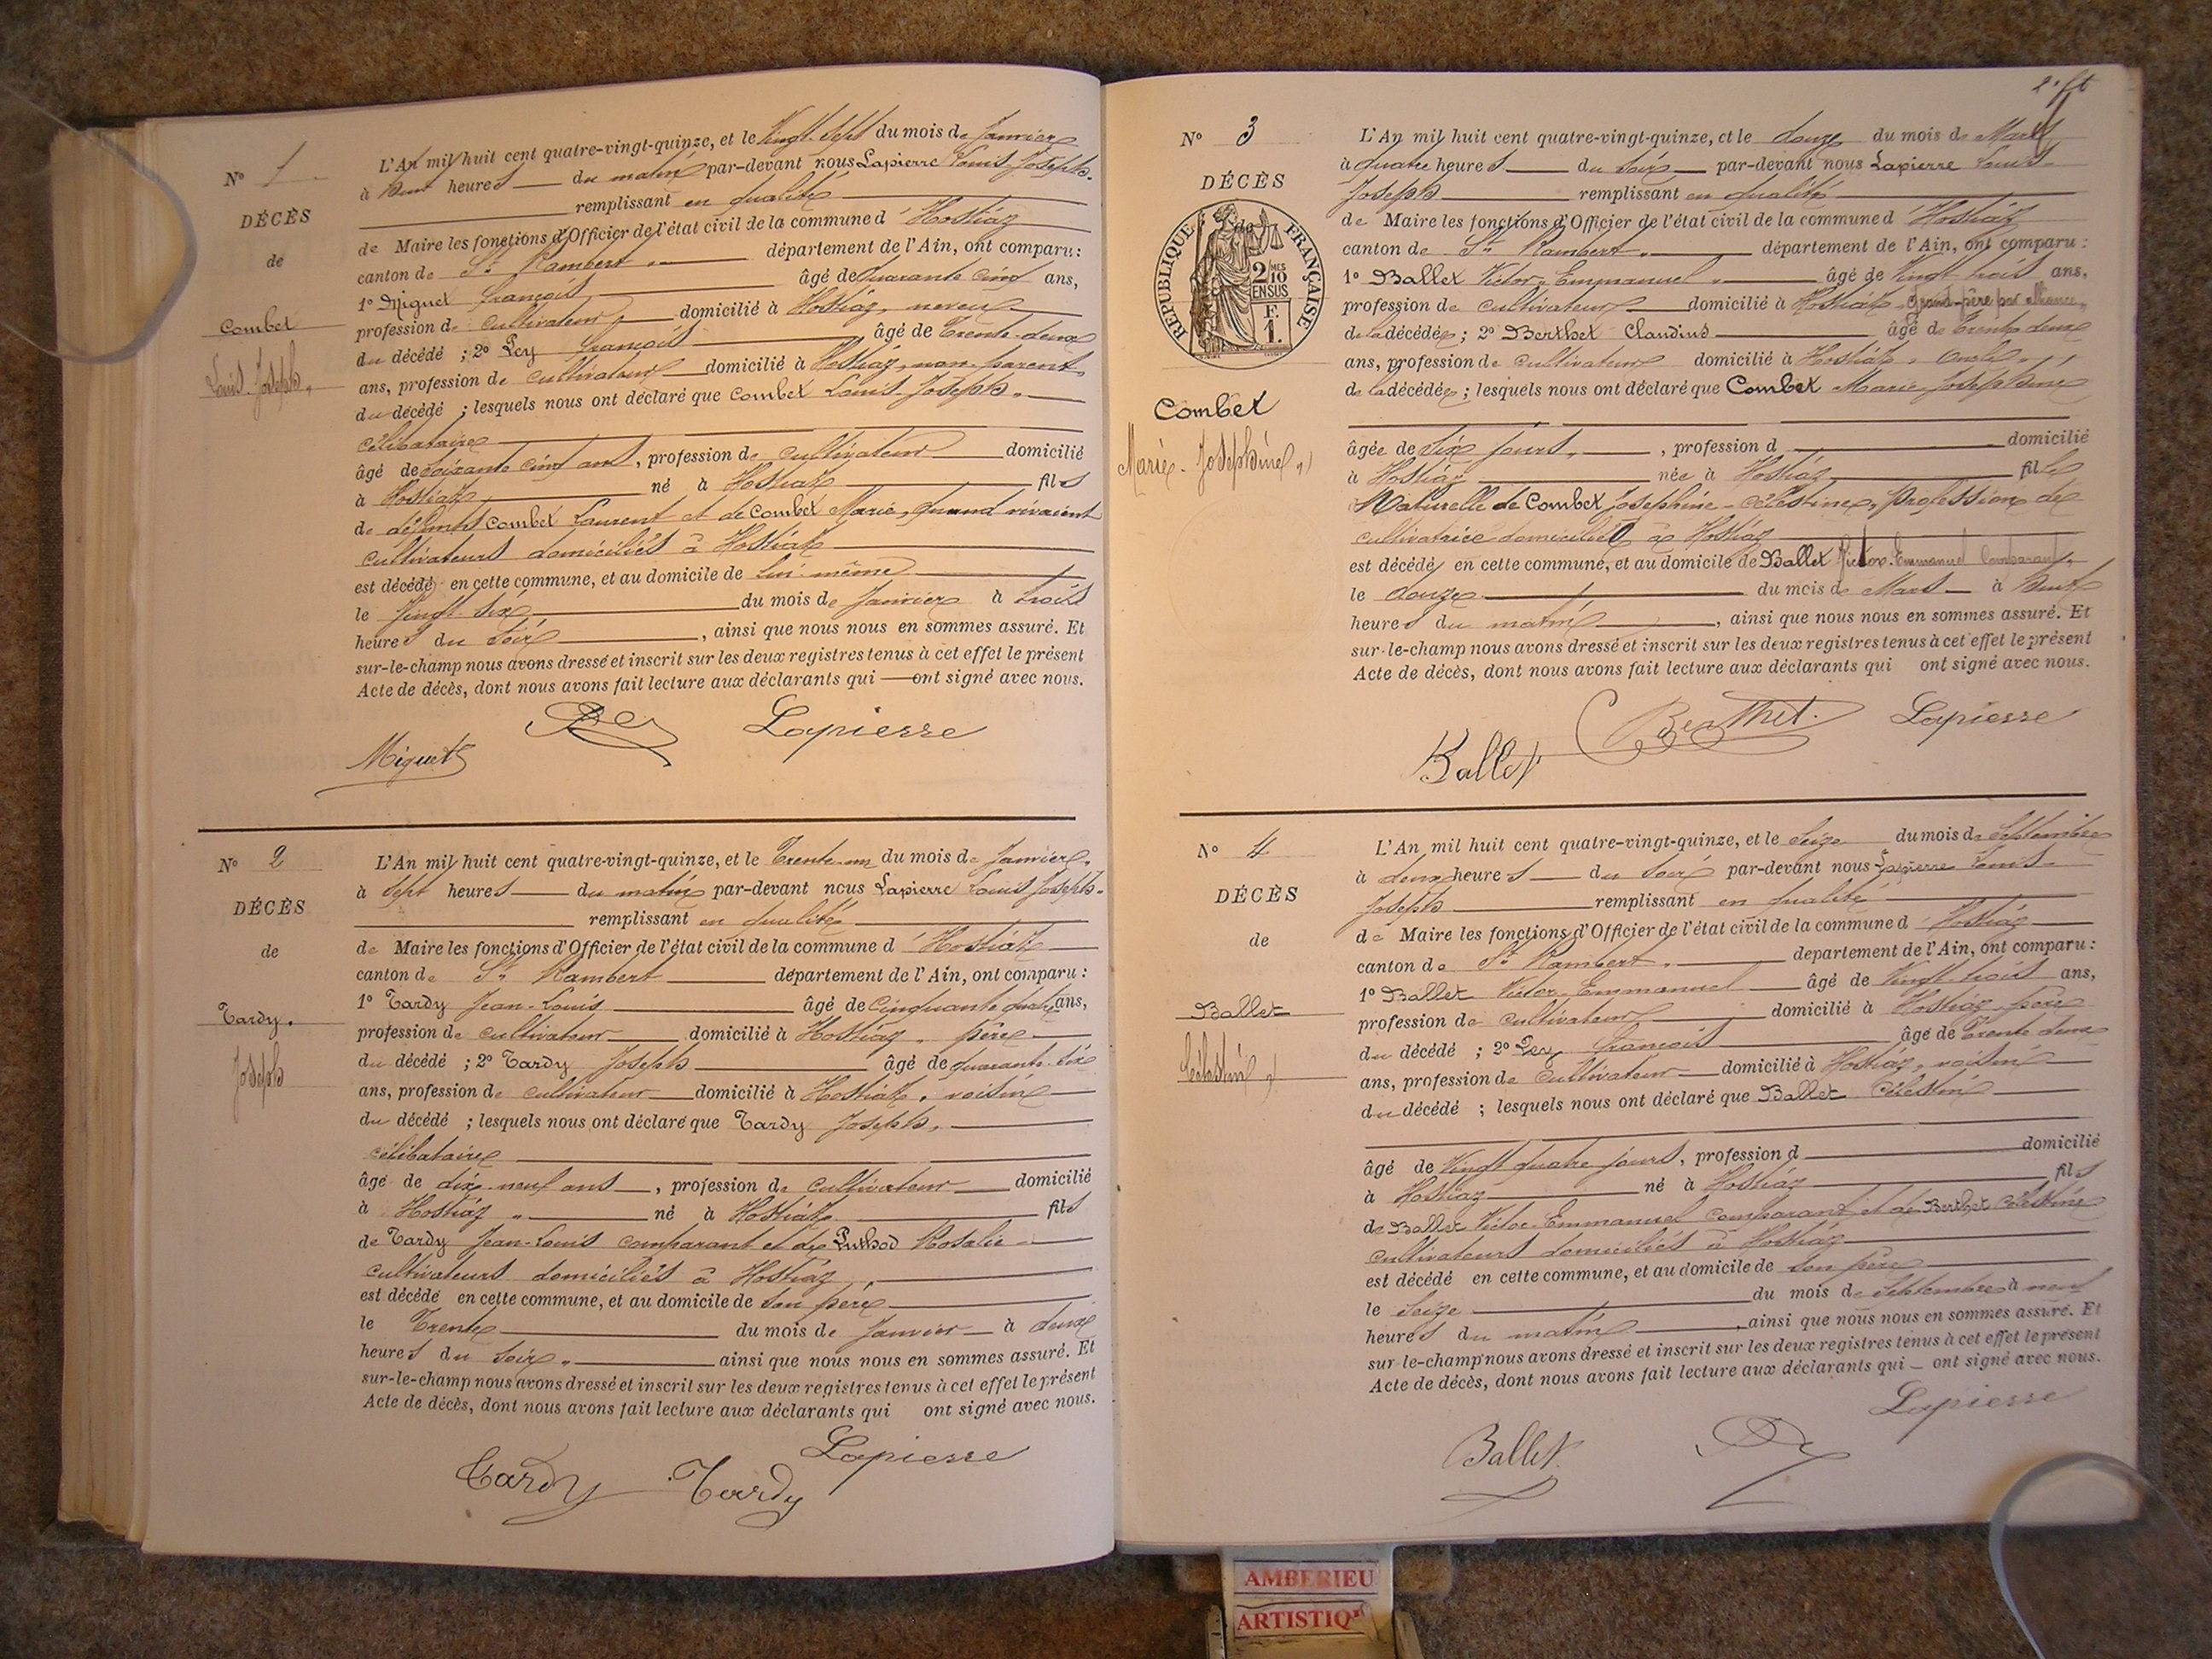 N° 1
DÉCÈS
de
Combet
Louis Joseph
L'An mil huit cent quatre-vingt-quinze, et le Vingt-Sept du mois de Janvier
à heures du matin par-devant nous Lapierre Louis Joseph
remplissant en qualité
de Maire les fonctions d'Officier de l'état civil de la commune d'Hostiaz
canton de St Rambert département de l'Ain, ont comparu :
1° Miguet François âgé de Quarante cinq ans,
profession de cultivateur domicilié à Hostiaz, neveu
du décédé ; 2° Pey François âgé de Trente-deux
ans, profession de cultivateur domicilié à Hostiaz, non parent
du décédé ; lesquels nous ont déclaré que Combet Louis-Joseph
célibataire
âgé de soixante cinq ans, profession de cultivateur domicilié
à Hostiaz né à Hostiaz fils
de défunts Combet Laurent et de Combet Marie, quand vivaient
cultivateurs domiciliés à Hostiaz
est décédé en cette commune, et au domicile de lui-même
le Vingt six du mois de Janvier à trois
heures du soir, ainsi que nous nous en sommes assuré. Et
sur-le-champ nous avons dressé et inscrit sur les deux registres tenus à cet effet le présent
Acte de décès, dont nous avons fait lecture aux déclarants qui ont signé avec nous.
Pey Lapierre
Miguet
N° 2
DÉCÈS
de
Tardy.
Joseph
L'An mil huit cent quatre-vingt-quinze, et le Trente-un du mois de Janvier
à sept heures du matin par-devant nous Lapierre Louis Joseph
remplissant en qualité
de Maire les fonctions d'Officier de l'état civil de la commune d'Hostiaz
canton de St Rambert département de l'Ain, ont comparu :
1° Tardy Jean-Louis âgé de Cinquante quatre ans,
profession de cultivateur domicilié à Hostiaz, père
du décédé ; 2° Tardy Joseph âgé de quarante-six
ans, profession de cultivateur domicilié à Hostiaz, voisin
du décédé ; lesquels nous ont déclaré que Tardy Joseph,
célibataire
âgé de dix-neuf ans, profession de cultivateur domicilié
à Hostiaz né à Hostiaz fils
de Tardy Jean-Louis comparant et de Puthod Rosalie
cultivateurs domiciliés à Hostiaz,
est décédé en cette commune, et au domicile de son père
le Trente du mois de Janvier à deux
heures du soir ainsi que nous nous en sommes assuré. Et
sur-le-champ nous avons dressé et inscrit sur les deux registres tenus à cet effet le présent
Acte de décès, dont nous avons fait lecture aux déclarants qui ont signé avec nous.
Lapierre
Tardy Tardy
2e ft
N° 3
DÉCÈS
de
RÉPUBLIQUE FRANÇAISE
2/10MES
EN SUS
1F.
Combet
Marie-Joséphine
L'An mil huit cent quatre-vingt-quinze, et le douze du mois de Mars
à quatre heures du soir par-devant nous Lapierre Louis
Joseph remplissant en qualité
de Maire les fonctions d'Officier de l'état civil de la commune d'Hostiaz
canton de St Rambert département de l'Ain, ont comparu :
1° Ballet Victor-Emmanuel âgé de Vingt trois ans,
profession de cultivateur domicilié à Hostiaz Grand-père par alliance,
de la décédée ; 2° Berthet Claudius âgé de Trente deux
ans, profession de cultivateur domicilié à Hostiaz, oncle
de la décédée ; lesquels nous ont déclaré que Combet Marie-Joséphine
âgée de six jours, profession d domicilié
à Hostiaz née à Hostiaz fille
Naturelle de Combet Joséphine-Célestine, profession de
cultivatrice domiciliée à Hostiaz
est décédé en cette commune, et au domicile de Ballet Victor-Emmanuel Comparant,
le douze du mois de Mars à
heures du matin, ainsi que nous nous en sommes assuré. Et
sur-le-champ nous avons dressé et inscrit sur les deux registres tenus à cet effet le présent
Acte de décès, dont nous avons fait lecture aux déclarants qui ont signé avec nous.
Berthet. Lapierre
Ballet
N° 4
DÉCÈS
de
Ballet
Célestin
L'An mil huit cent quatre-vingt-quinze, et le Seize du mois de Septembre
à deux heures du soir par-devant nous Lapierre Louis
Joseph remplissant en qualité
de Maire les fonctions d'Officier de l'état civil de la commune d'Hostiaz
canton de St Rambert département de l'Ain, ont comparu :
1° Ballet Victor-Emmanuel âgé de Vingt trois ans,
profession de cultivateur domicilié à Hostiaz père
du décédé ; 2° Pey François âgé de Trente deux
ans, profession de cultivateur domicilié à Hostiaz, voisin
du décédé ; lesquels nous ont déclaré que Ballet Célestin
âgé de Vingt quatre jours, profession d domicilié
à Hostiaz né à Hostiaz fils
de Ballet Victor-Emmanuel comparant et de Berthet Célestine
cultivateurs domiciliés à Hostiaz
est décédé en cette commune, et au domicile de son père
le Seize du mois de Septembre à neuf
heures du matin, ainsi que nous nous en sommes assuré. Et
sur-le-champ nous avons dressé et inscrit sur les deux registres tenus à cet effet le présent
Acte de décès, dont nous avons fait lecture aux déclarants qui ont signé avec nous.
Lapierre
Ballet
AMBERIEU
ARTISTIQ